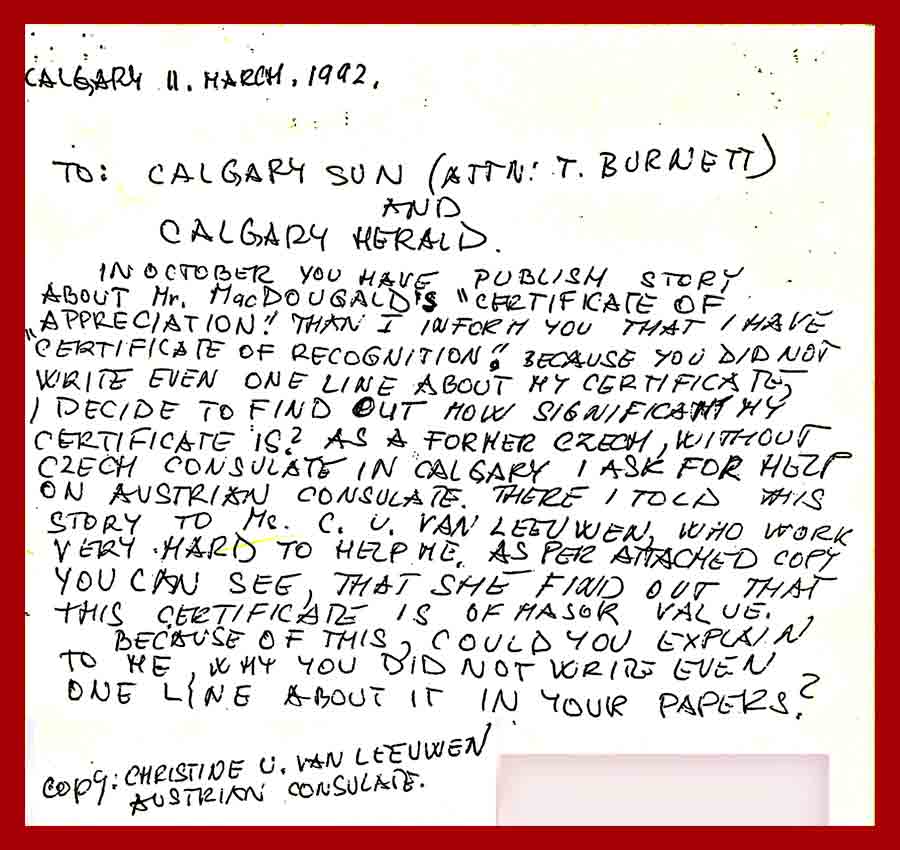 CALGARY 11. MARCH. 1992.
TO: CALGARY SUN (ATTN: T. BURNETT)
AND
CALGARY HERALD.
IN OCTOBER YOU HAVE PUBLISH STORY
ABOUT Mr. MacDOUGALD'S "CERTIFICATE OF
APPRECIATION." THAN I INFORM YOU THAT I HAVE
"CERTIFICATE OF RECOGNITION". BECAUSE YOU DID NOT
WRITE EVEN ONE LINE ABOUT MY CERTIFICATE,
I DECIDE TO FIND OUT HOW SIGNIFICANT MY
CERTIFICATE IS? AS A FORMER CZECH, WITHOUT
CZECH CONSULATE IN CALGARY I ASK FOR HELP
ON AUSTRIAN CONSULATE. THERE I TOLD THIS
STORY TO Ms. C. U. VAN LEEUWEN, WHO WORK
VERY HARD TO HELP ME. AS PER ATTACHED COPY
YOU CAN SEE, THAT SHE FIND OUT THAT
THIS CERTIFICATE IS OF MASOR VALUE.
BECAUSE OF THIS, COULD YOU EXPLAIN
TO ME, WHY YOU DID NOT WRITE EVEN
ONE LINE ABOUT IT IN YOUR PAPERS?
COPY: CHRISTINE U. VAN LEEUWEN
AUSTRIAN CONSULATE.